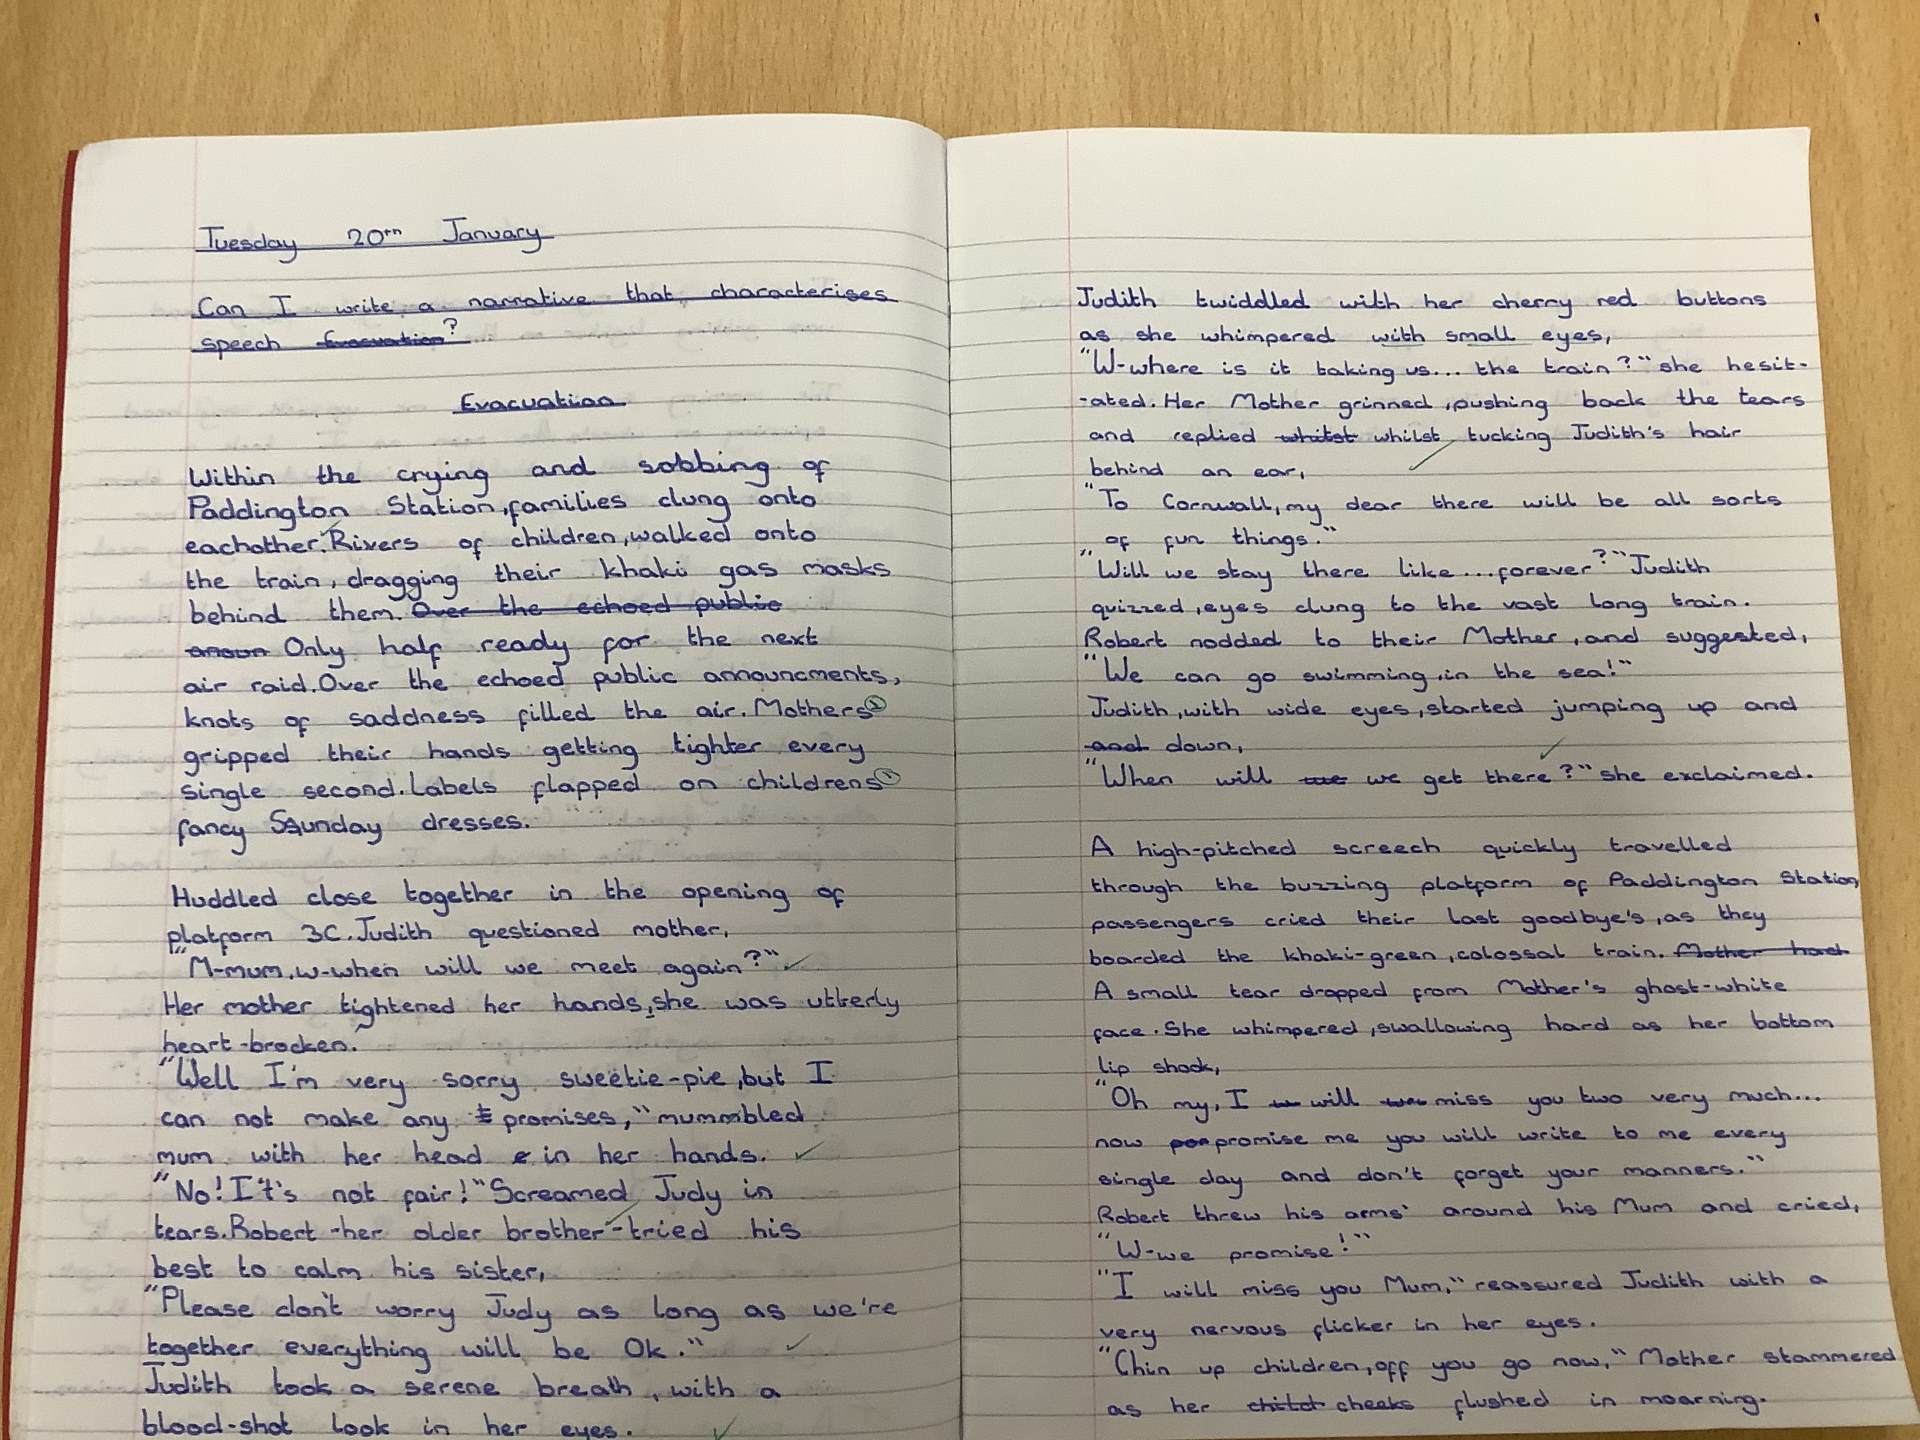 Tuesday 20th January
Can I write a narrative that characterises
speech Evacuation?
Evacuation
Within the crying and sobbing of
Paddington Station, families clung onto
eachother. Rivers of children, walked onto
the train, dragging their khaki gas masks
behind them. Over the echoed public
anoun Only half ready for the next
air raid. Over the echoed public announcments,
knots of saddness filled the air. Mothers
gripped their hands getting tighter every
single second. Labels flapped on childrens
fancy Sunday dresses.
Huddled close together in the opening of
platform 3C. Judith questioned mother,
"M-mum, w-when will we meet again?"
Her mother tightened her hands, she was utterly
heart-brocken.
"Well I'm very sorry sweetie-pie, but I
can not make any t promises," mummbled
mum with her head e in her hands.
"No! It's not fair!" Screamed Judy in
tears. Robert -her older brother- tried his
best to calm his sister,
"Please don't worry Judy as long as we're
together everything will be Ok."
Judith took a serene breath, with a
blood-shot look in her eyes.
Judith twiddled with her cherry red buttons
as she whimpered with small eyes,
"W-where is it taking us... the train?" she hesit-
-ated. Her Mother grinned, pushing back the tears
and replied whitst whilst tucking Judith's hair
behind an ear,
"To Cornwall, my dear there will be all sorts
of fun things."
"Will we stay there like... forever?" Judith
quizzed, eyes clung to the vast long train.
Robert nodded to their Mother, and suggested,
"We can go swimming, in the sea!"
Judith, with wide eyes, started jumping up and
and down,
"When will we we get there?" she exclaimed.
A high-pitched screech quickly travelled
through the buzzing platform of Paddington Station,
passengers cried their last goodbye's, as they
boarded the khaki-green, colossal train. Mother had
A small tear dropped from Mother's ghost-white
face. She whimpered, swallowing hard as her bottom
lip shook,
"Oh my, I w will miss you two very much...
now promise me you will write to me every
single day and don't forget your manners."
Robert threw his arms around his Mum and cried,
"W-we promise!"
"I will miss you Mum," reassured Judith with a
very nervous flicker in her eyes.
"Chin up children, off you go now," Mother stammered
as her child cheeks flushed in moarning.